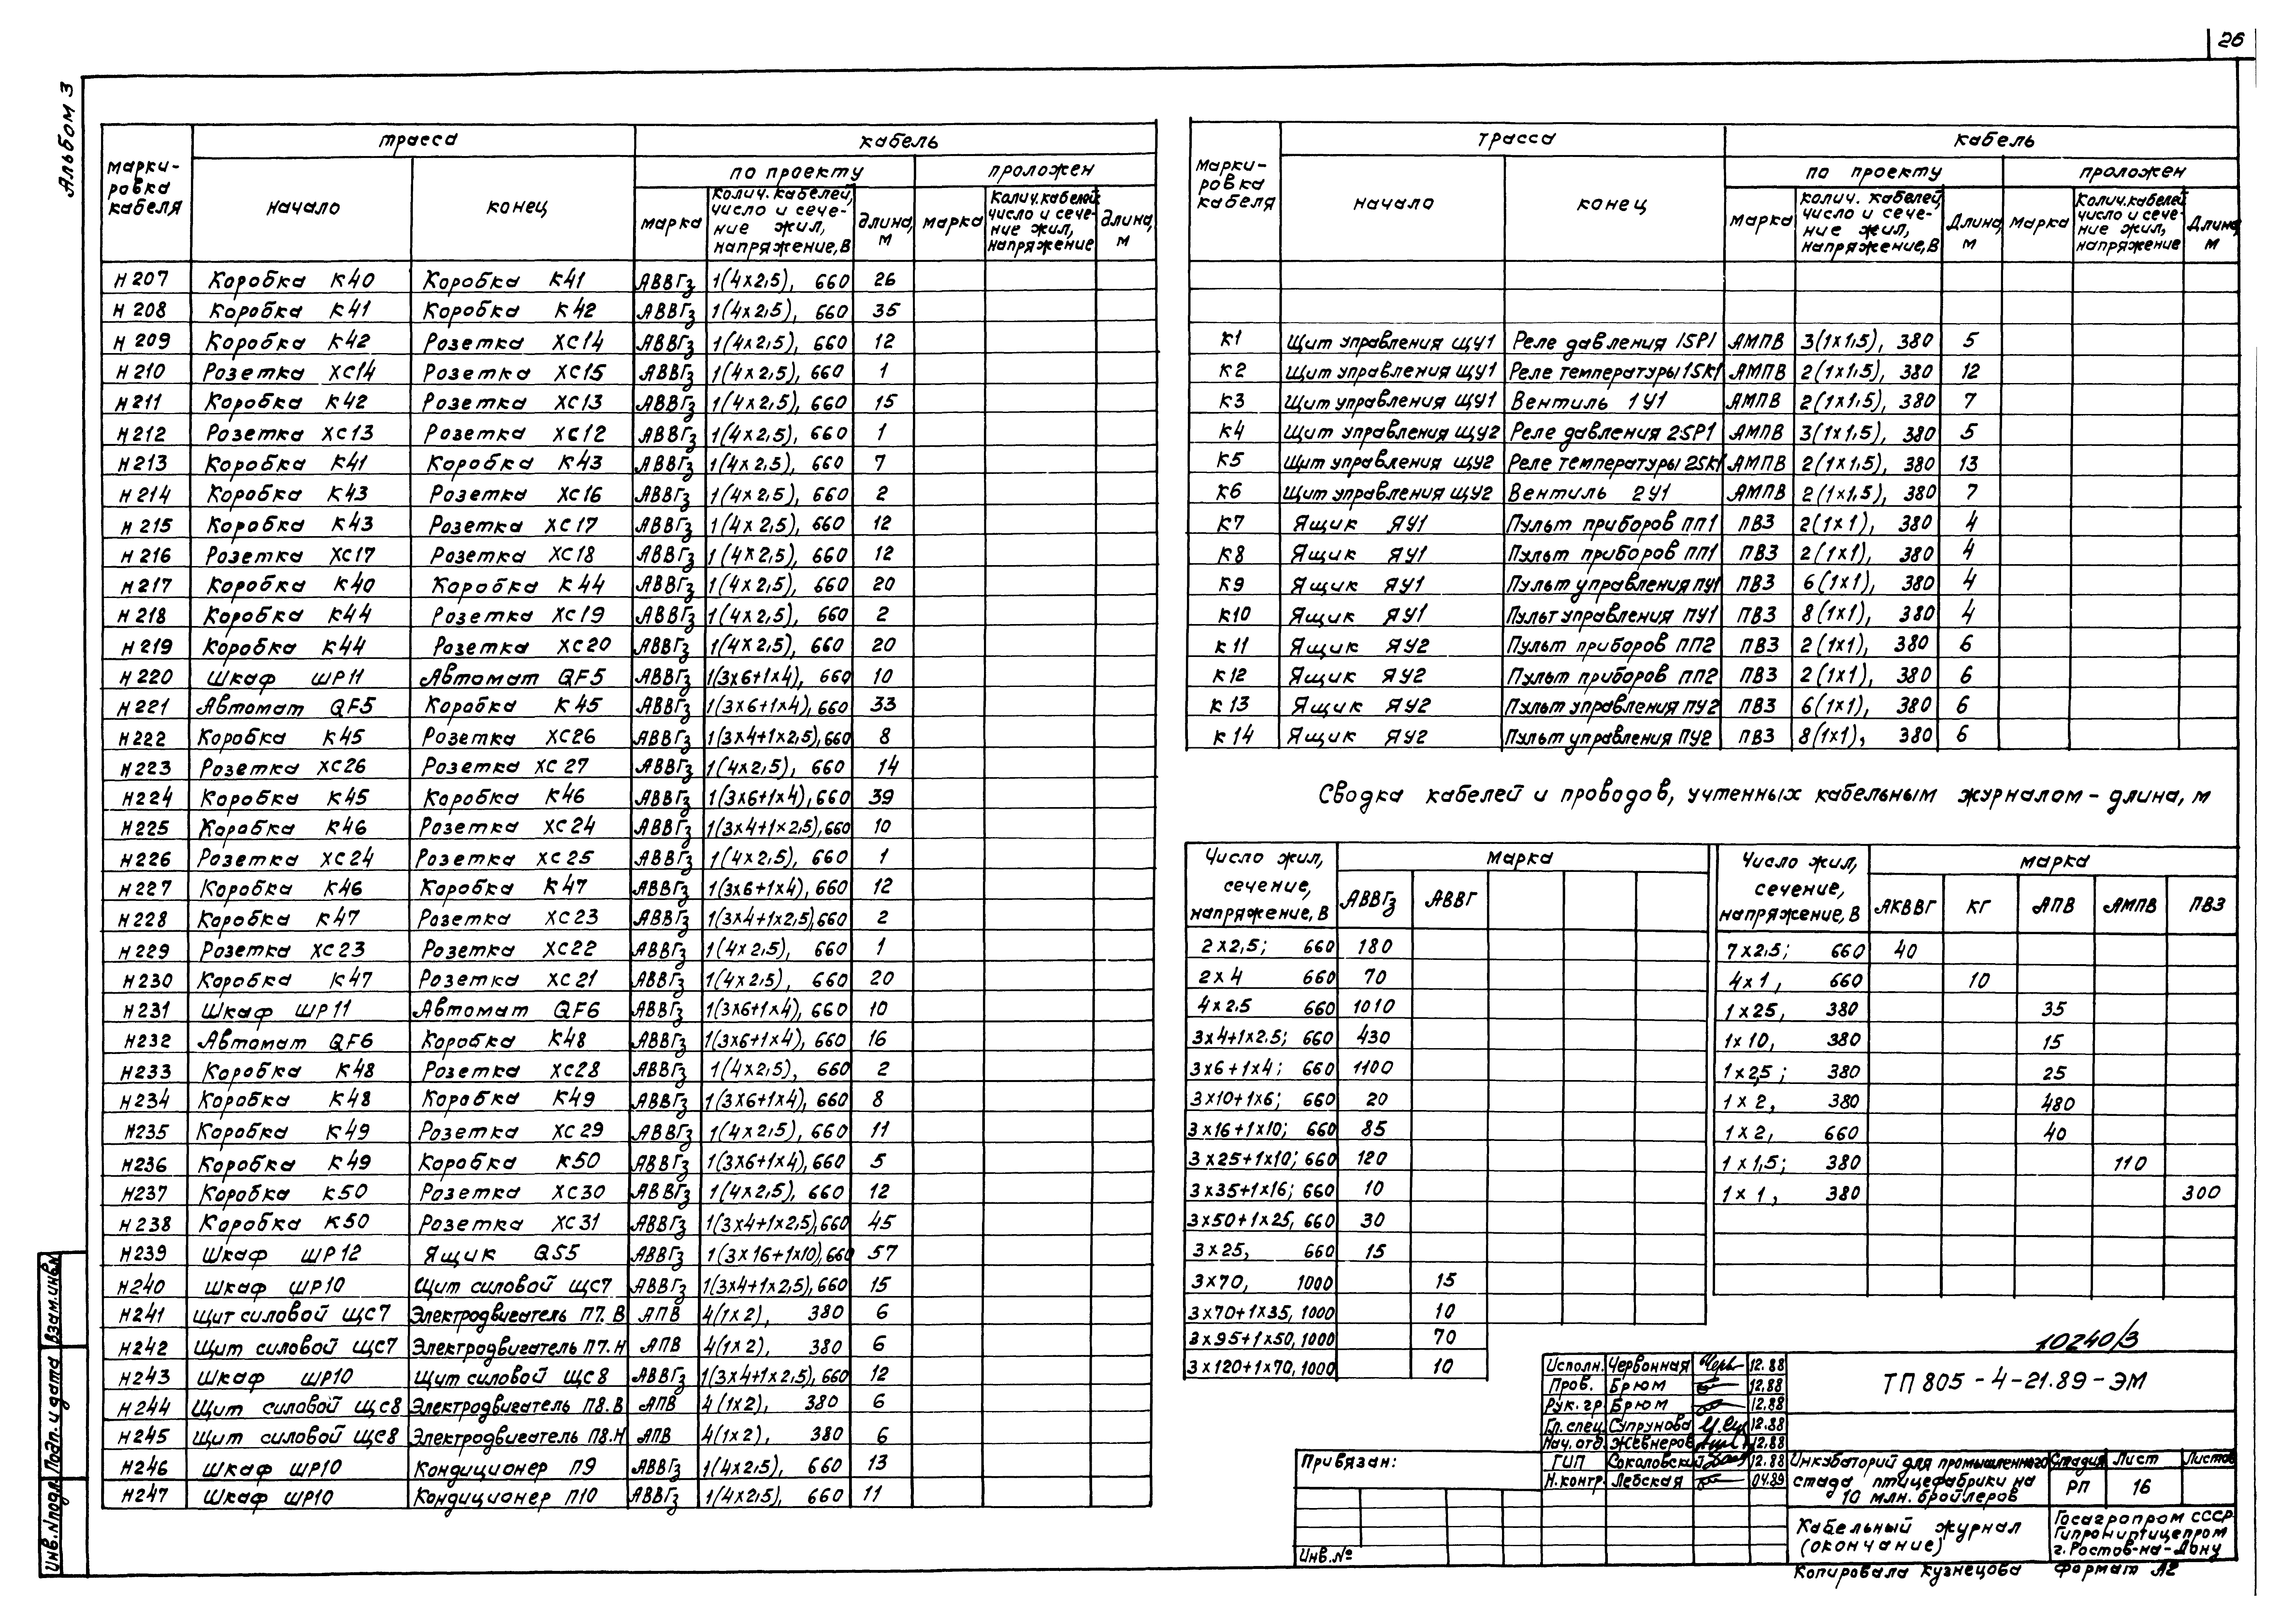 26
Альбом 3
марки-ровка кабеля | трасса | кабель
начало | конец | по проекту | проложен
марка | колич. кабелей, число и сечение жил, напряжение, В | длина, м | марка | колич. кабелей число и сечение жил, напряжение | длина, м
Н207 Коробка К40 Коробка К41 АВВГз 1(4х2,5), 660 26
Н208 Коробка К41 Коробка К42 АВВГз 1(4х2,5), 660 35
Н209 Коробка К42 Розетка ХС14 АВВГз 1(4х2,5), 660 12
Н210 Розетка ХС14 Розетка ХС15 АВВГз 1(4х2,5), 660 1
Н211 Коробка К42 Розетка ХС13 АВВГз 1(4х2,5), 660 15
Н212 Розетка ХС13 Розетка ХС12 АВВГз 1(4х2,5), 660 1
Н213 Коробка К41 Коробка К43 АВВГз 1(4х2,5), 660 7
Н214 Коробка К43 Розетка ХС16 АВВГз 1(4х2,5), 660 2
Н215 Коробка К43 Розетка ХС17 АВВГз 1(4х2,5), 660 12
Н216 Розетка ХС17 Розетка ХС18 АВВГз 1(4х2,5), 660 12
Н217 Коробка К40 Коробка К44 АВВГз 1(4х2,5), 660 20
Н218 Коробка К44 Розетка ХС19 АВВГз 1(4х2,5), 660 2
Н219 Коробка К44 Розетка ХС20 АВВГз 1(4х2,5), 660 20
Н220 Шкаф ШР11 Автомат QF5 АВВГз 1(3х6+1х4), 660 10
Н221 Автомат QF5 Коробка К45 АВВГз 1(3х6+1х4), 660 33
Н222 Коробка К45 Розетка ХС26 АВВГз 1(3х4+1х2,5), 660 8
Н223 Розетка ХС26 Розетка ХС27 АВВГз 1(4х2,5), 660 14
Н224 Коробка К45 Коробка К46 АВВГз 1(3х6+1х4), 660 39
Н225 Коробка К46 Розетка ХС24 АВВГз 1(3х4+1х2,5), 660 10
Н226 Розетка ХС24 Розетка ХС25 АВВГз 1(4х2,5), 660 1
Н227 Коробка К46 Коробка К47 АВВГз 1(3х6+1х4), 660 12
Н228 Коробка К47 Розетка ХС23 АВВГз 1(3х4+1х2,5), 660 2
Н229 Розетка ХС23 Розетка ХС22 АВВГз 1(4х2,5), 660 1
Н230 Коробка К47 Розетка ХС21 АВВГз 1(4х2,5), 660 20
Н231 Шкаф ШР11 Автомат QF6 АВВГз 1(3х6+1х4), 660 10
Н232 Автомат QF6 Коробка К48 АВВГз 1(3х6+1х4), 660 16
Н233 Коробка К48 Розетка ХС28 АВВГз 1(4х2,5), 660 2
Н234 Коробка К48 Коробка К49 АВВГз 1(3х6+1х4), 660 8
Н235 Коробка К49 Розетка ХС29 АВВГз 1(4х2,5), 660 11
Н236 Коробка К49 Коробка К50 АВВГз 1(3х6+1х4), 660 5
Н237 Коробка К50 Розетка ХС30 АВВГз 1(4х2,5), 660 12
Н238 Коробка К50 Розетка ХС31 АВВГз 1(3х4+1х2,5), 660 45
Н239 Шкаф ШР12 Ящик QS5 АВВГз 1(3х16+1х10), 660 57
Н240 Шкаф ШР10 Щит силовой ЩС7 АВВГз 1(3х4+1х2,5), 660 15
Н241 Щит силовой ЩС7 Электродвигатель П7.В АПВ 4(1х2), 380 6
Н242 Щит силовой ЩС7 Электродвигатель П7.Н АПВ 4(1х2), 380 6
Н243 Шкаф ШР10 Щит силовой ЩС8 АВВГз 1(3х4+1х2,5), 660 12
Н244 Щит силовой ЩС8 Электродвигатель П8.В АПВ 4(1х2), 380 6
Н245 Щит силовой ЩС8 Электродвигатель П8.Н АПВ 4(1х2), 380 6
Н246 Шкаф ШР10 Кондиционер П9 АВВГз 1(4х2,5), 660 13
Н247 Шкаф ШР10 Кондиционер П10 АВВГз 1(4х2,5), 660 11
Марки-ровка кабеля | трасса | кабель
начало | конец | по проекту | проложен
марка | колич. кабелей, число и сечение жил, напряжение, В | Длина, м | марка | Колич. кабелей число и сечение жил, напряжение | Длина, м
К1 Щит управления ЩУ1 Реле давления 1SP1 АМПВ 3(1х1,5), 380 5
К2 Щит управления ЩУ1 Реле температуры 1SK1 АМПВ 2(1х1,5), 380 12
К3 Щит управления ЩУ1 Вентиль 1У1 АМПВ 2(1х1,5), 380 7
К4 Щит управления ЩУ2 Реле давления 2SP1 АМПВ 3(1х1,5), 380 5
К5 Щит управления ЩУ2 Реле температуры 2SK1 АМПВ 2(1х1,5), 380 13
К6 Щит управления ЩУ2 Вентиль 2У1 АМПВ 2(1х1,5), 380 7
К7 Ящик ЯУ1 Пульт приборов ПП1 ПВ3 2(1х1), 380 4
К8 Ящик ЯУ1 Пульт приборов ПП1 ПВ3 2(1х1), 380 4
К9 Ящик ЯУ1 Пульт управления ПУ1 ПВ3 6(1х1), 380 4
К10 Ящик ЯУ1 Пульт управления ПУ1 ПВ3 8(1х1), 380 4
К11 Ящик ЯУ2 Пульт приборов ПП2 ПВ3 2(1х1), 380 6
К12 Ящик ЯУ2 Пульт приборов ПП2 ПВ3 2(1х1), 380 6
К13 Ящик ЯУ2 Пульт управления ПУ2 ПВ3 6(1х1), 380 6
К14 Ящик ЯУ2 Пульт управления ПУ2 ПВ3 8(1х1), 380 6
Сводка кабелей и проводов, учтенных кабельным журналом - длина, м
Число жил, сечение, напряжение, В | Марка
АВВГз | АВВГ
2х2,5; 660 180
2х4 660 70
4х2,5 660 1010
3х4+1х2,5; 660 430
3х6+1х4; 660 1100
3х10+1х6; 660 20
3х16+1х10; 660 85
3х25+1х10; 660 120
3х35+1х16; 660 10
3х50+1х25, 660 30
3х25, 660 15
3х70, 1000 15
3х70+1х35, 1000 10
3х95+1х50, 1000 70
3х120+1х70, 1000 10
Число жил, сечение, напряжение, В | марка
АКВВГ | КГ | АПВ | АМПВ | ПВ3
7х2,5; 660 40
4х1, 660 10
1х25, 380 35
1х10, 380 15
1х2,5; 380 25
1х2, 380 480
1х2, 660 40
1х1,5; 380 110
1х1, 380 300
10240/3
Исполн. Червонная 12.88
Пров. Брюм 12.88
Рук. гр Брюм 12.88
Гл. спец. Супрунова 12.88
Нач. отд. Жевнеров 12.88
ГИП Соколовский 12.88
Н. контр. Левская 04.89
ТП 805-4-21.89-ЭМ
Инкубаторий для промышленного стада птицефабрики на 10 млн. бройлеров
Стадия Лист Листов
РП 16
Кабельный журнал (окончание)
Госагропром СССР
Гипрониптицепром
г. Ростов-на-Дону
Привязан:
Инв. №
Копировала Кузнецова Формат А2
Взам. инв. №
Подп. и дата
Инв. № подл.